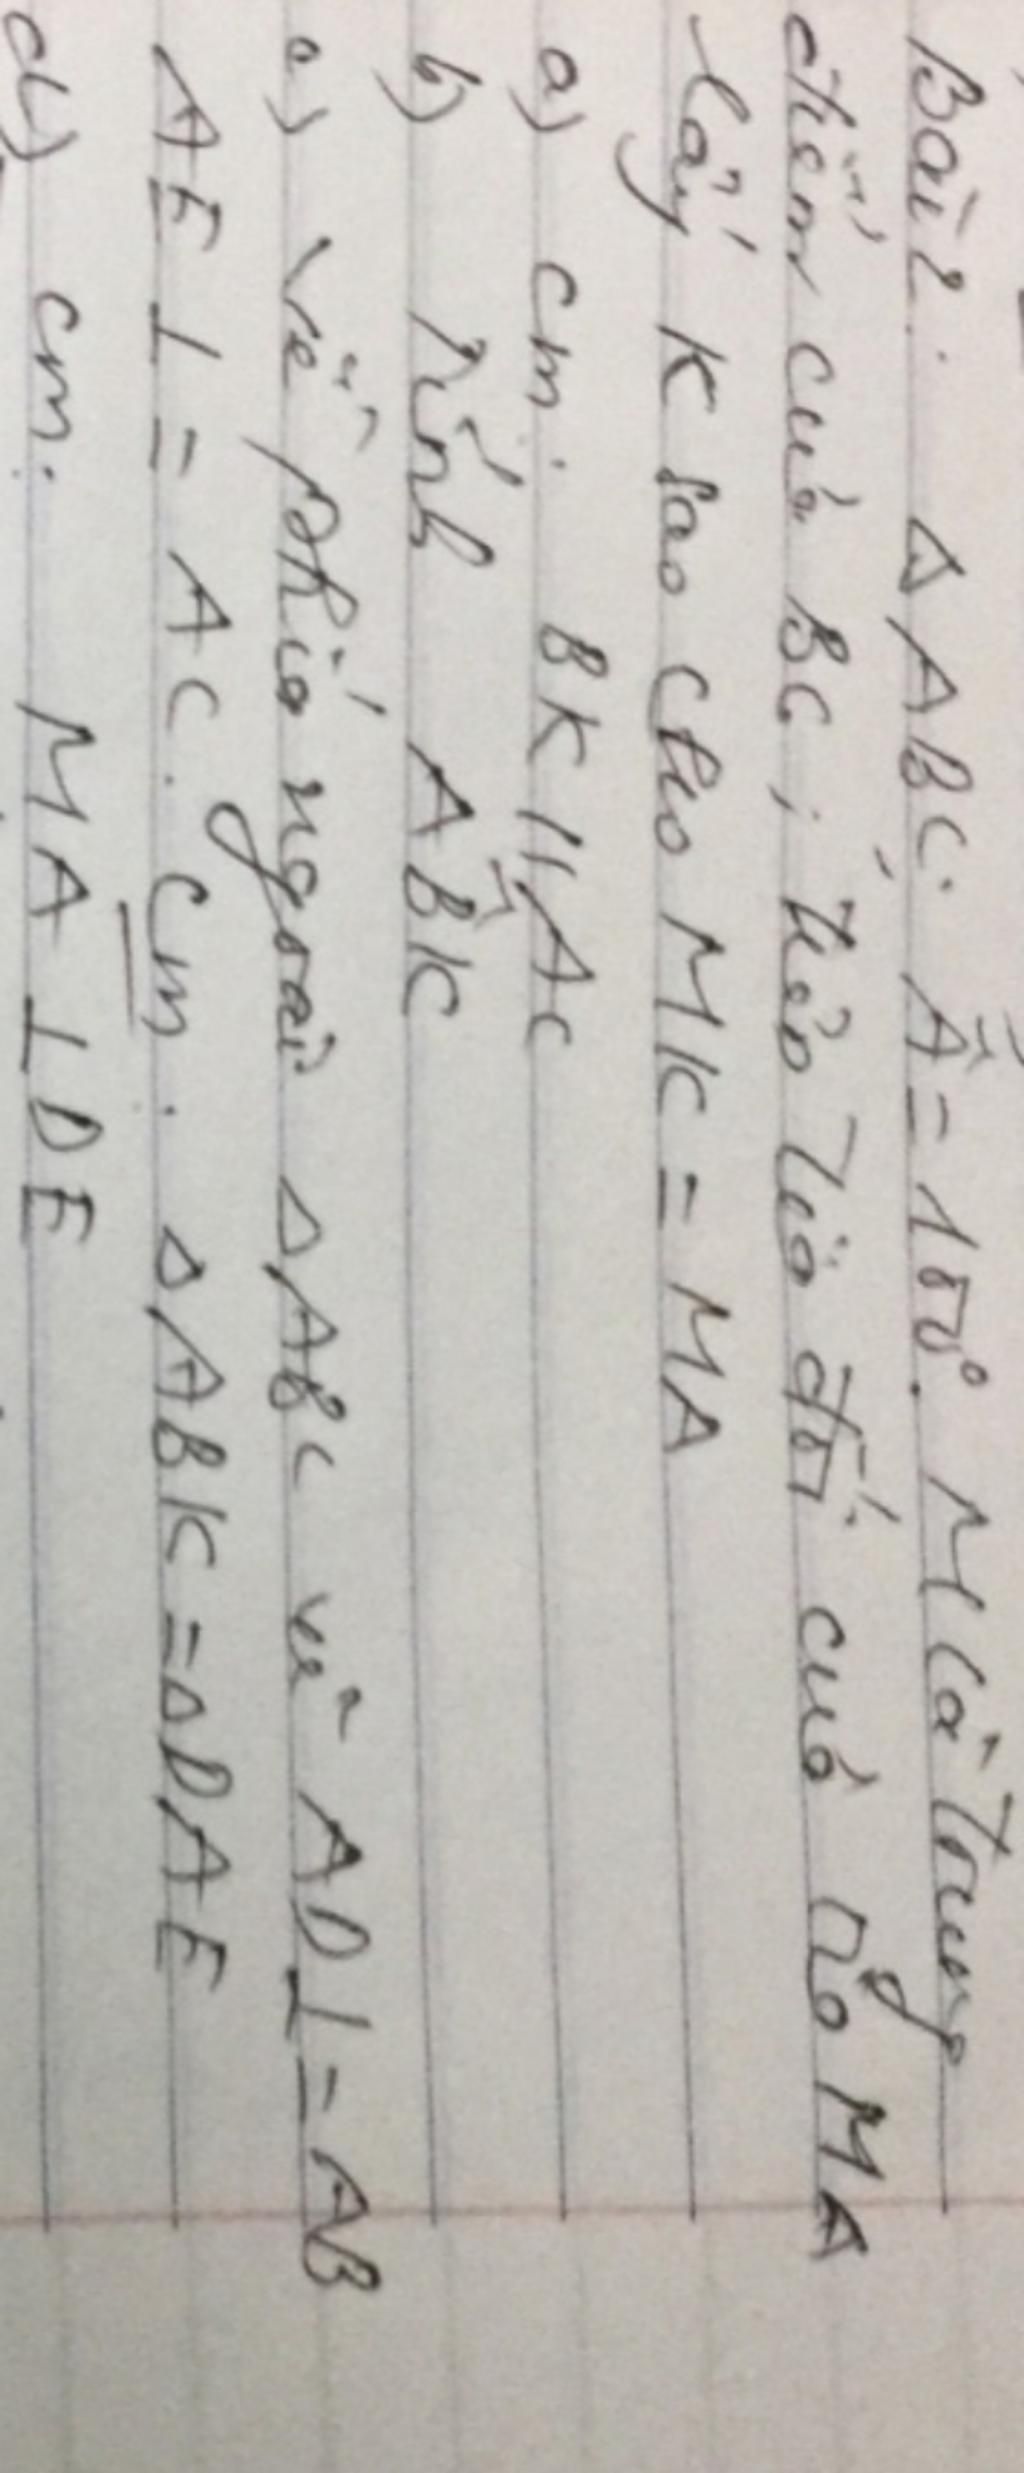 Bài 2. △ABC. Â = 100°. M là trung
điểm của BC; trên tia đối của tia MA
lấy K sao cho MK = MA
a) cm: BK // AC
b) Tính AB̂K
c) vẽ phía ngoài △ABC vẽ AD ⊥ = AB
AE ⊥ = AC. Cm. △ABK = △DAE
d) cm. MA ⊥ DE